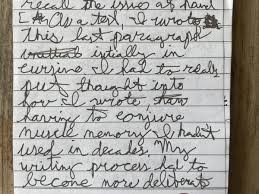 recall the issues at hand
[* As a test, I wrote
this last paragraph
initially in
cursive. I had to really
put thought into
how I wrote,
having to conjure
muscle memory I hadn't
used in decades. My
writing process had to
become more deliberate